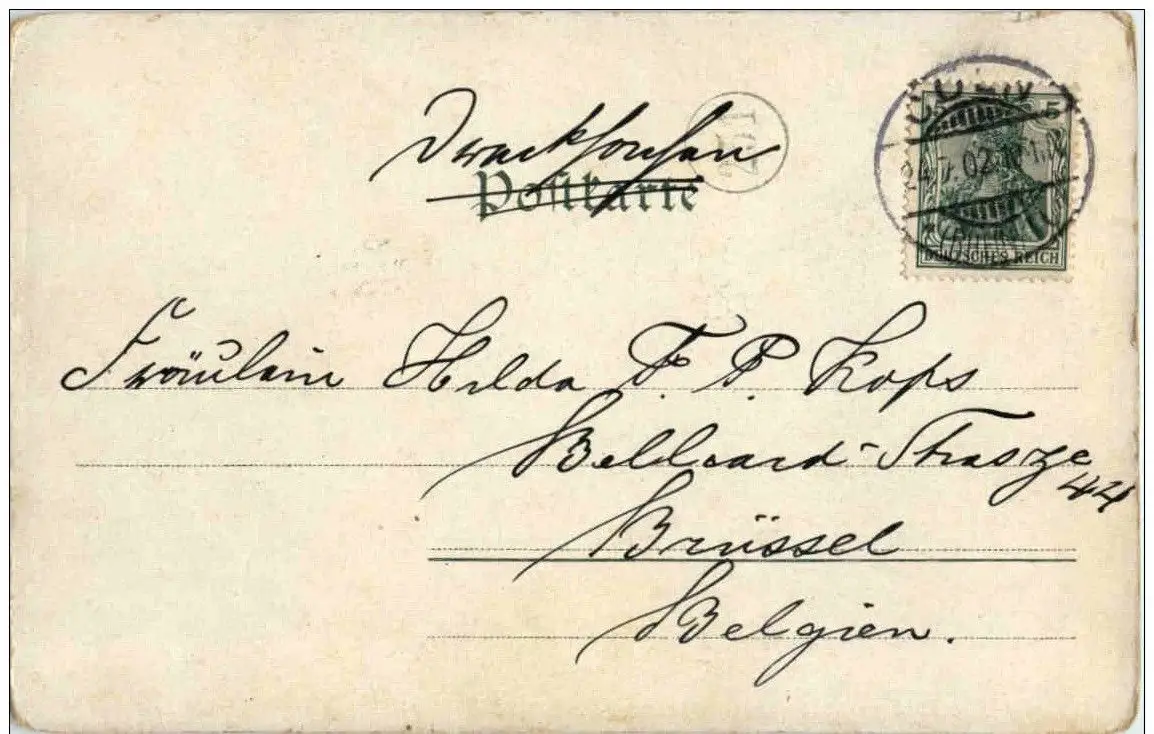 Drucksachen
Postkarte
5
DEUTSCHES REICH
Fräulein Hilda F. P. Kops
Belliard-Strasze
44
Brüssel
Belgien.